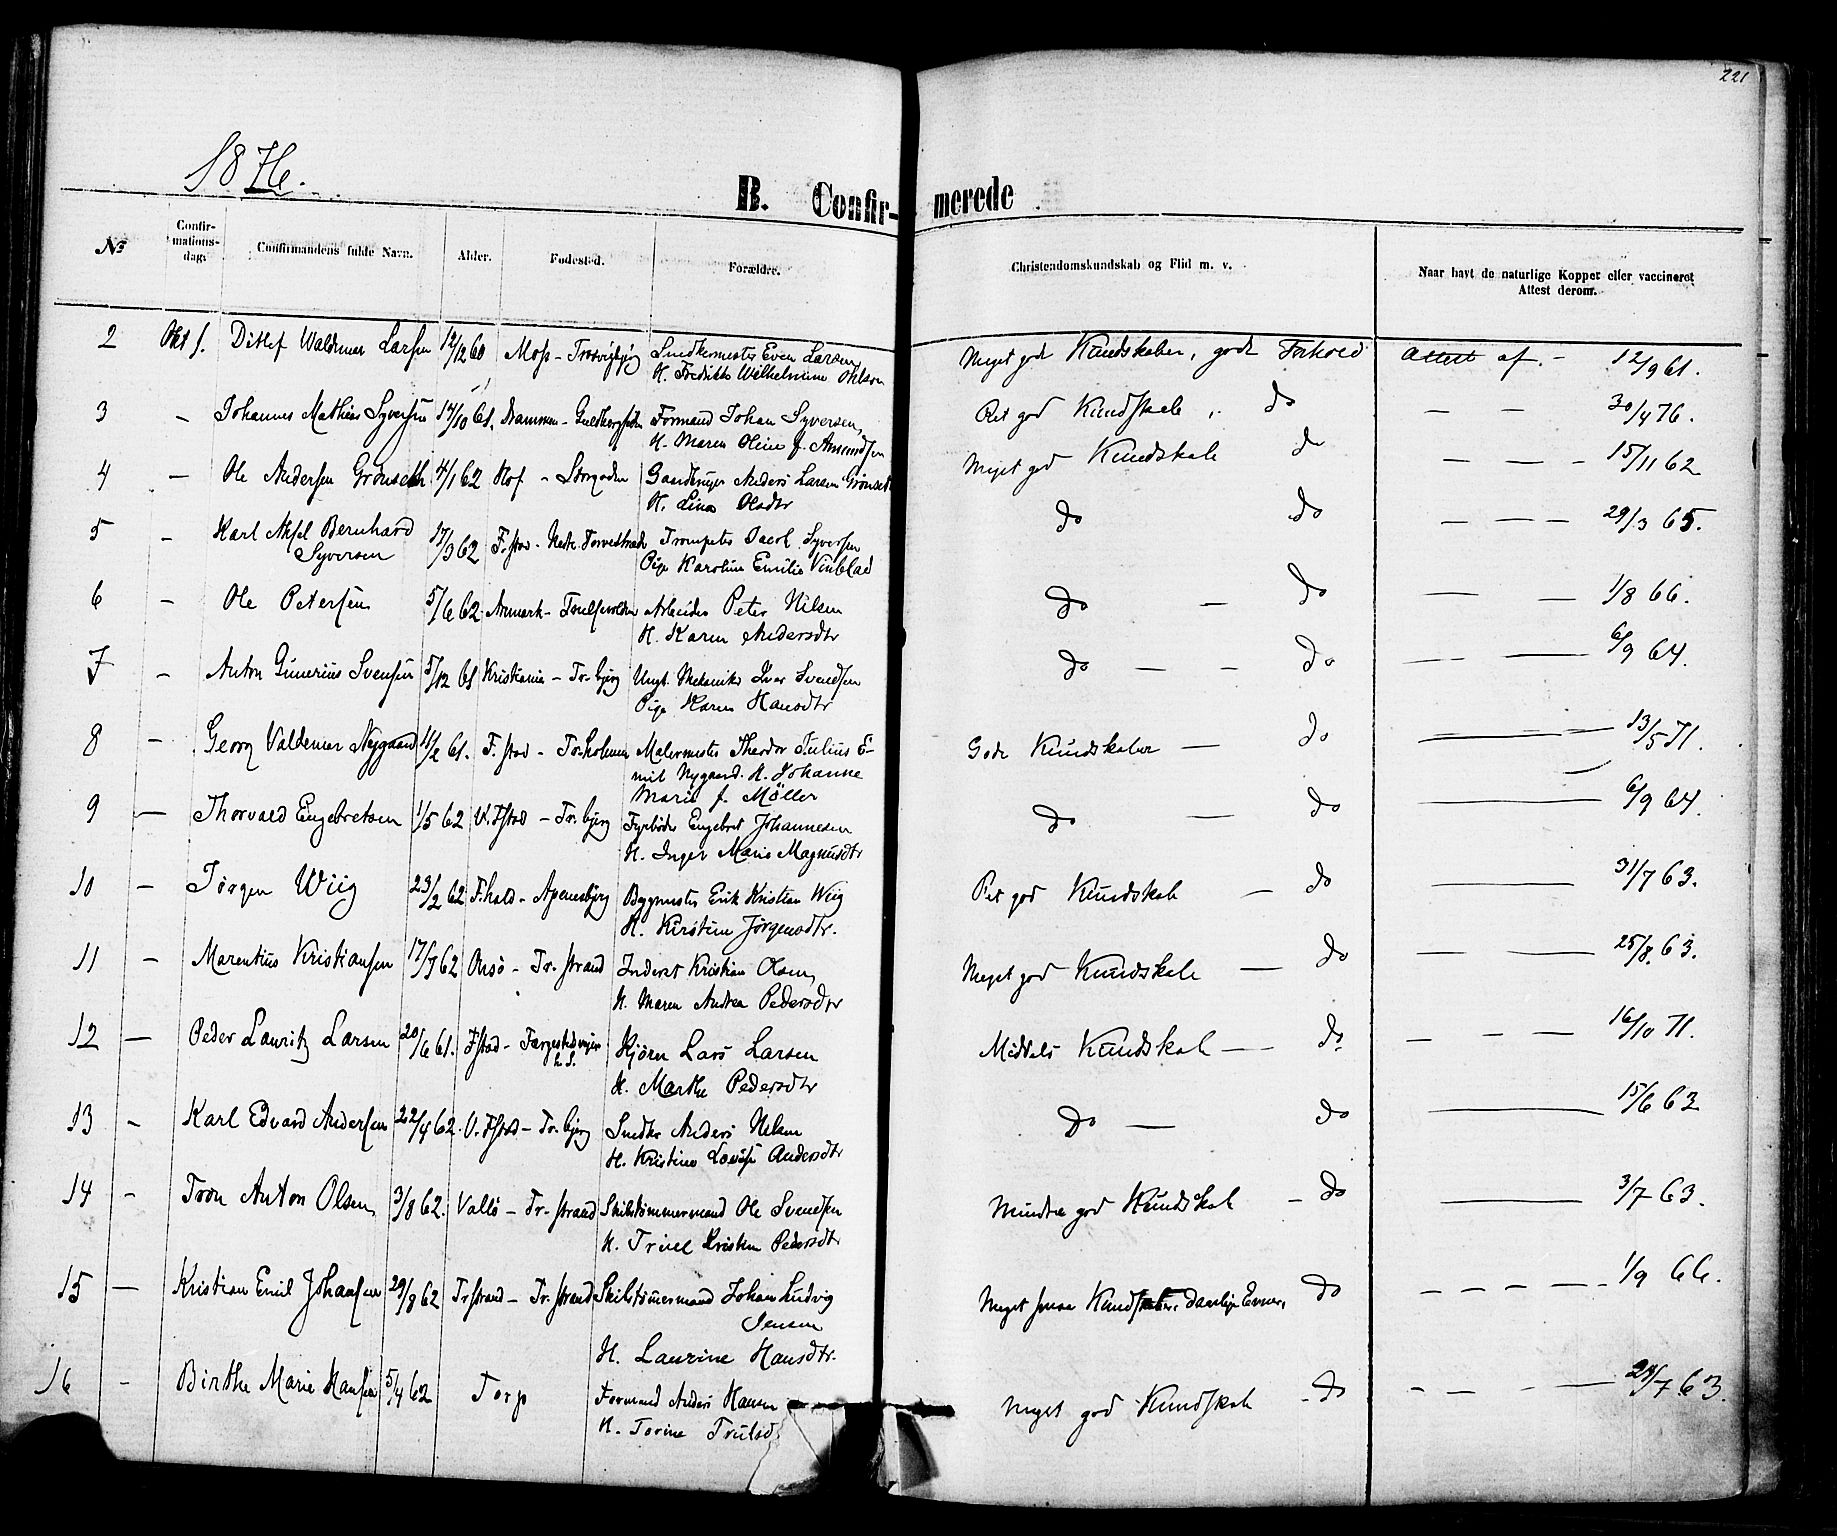 221
1876.
B. Confir- merede
No
Confir-
mations-
dag.
Confirmandens fulde Navn.
Alder.
Fødested.
Forældre.
Christendomskundskab og Flid m. v.
Naar havt de naturlige Kopper eller vaccineret
Attest derom.
2 Okt 1. Ditlef Waldemar Larsen 12/12 60 Moss - Snedkermester Even Larsen Meget gode Kundskaber, godt Forhold Attest af - 12/9 61.
H. Fredrikke Wilhelmine Ohlsen
3 - Johannes Mathias Syversen 14/10 61. Drammen - Formand Johan Syversen, Ret god Kundskab, do - - 30/4 76.
H. Maren Oline f. Amundsen
4 - Ole Andersen Grønseth 4/1 62 Hof - Anders Larsen Grønseth Meget god Kundskab do - - - 15/11 62
H. Lina Olsdtr
5 - Karl Aksel Bernhard 17/3 62 F.stad - Nedr. Torvestræde Trompeter Jacob Syversen do do - - - 29/3 65.
Syversen Pige Karoline Emilie Vinblad
6 - Ole Petersen 5/6 62 Aremark - Arbeider Peter Nilsen do - do - - 1/8 66.
H. Karen Andersdtr
7 - Anton Gunerius Svensen 5/12 61 Kristiania - Tr. bjerg Ungk. Mekaniker Iver Svendsen do - - do - - 6/9 64.
Pige Karen Hansdtr
8 - Georg Valdemar Nygaard 11/2 61. F. stad - Malermester Theodor Julius E- Gode Kundskaber - do - 13/5 71.
mil Nygaard. H. Johanne
Marie f. Møller
9 - Thorvald Engebretsen 1/5 62 V. Fstad - Tr. bjerg Fyrbøder Engebret Johannesen do - do - 6/9 64.
H. Inger Marie Magnusdtr
10 - Jørgen Wiig 23/2 62 F.hald - Apenesbjerg Bygmester Erik Kristian Wiig Ret god Kundskab - do - 31/7 63.
H. Kirstine Jørgensdtr.
11 - Marentius Kristiansen 17/3 62 Onsø - Tr. strand Inderst Kristian Olsen, Meget god Kundskab - do - - 25/8. 63.
H. Maren Andrea Pedersdtr
12 - Peder Lauritz Larsen 20/6 61. Fstad - Færgestedsveien Kjører Lars Larsen Middels Kundskab - do. - - - 16/10 71.
H. Marthe Pedersdtr
13 - Karl Edvard Andersen 22/4 62. V. Fstad - Tr. bjerg Snedker Anders Nilsen do - do - 15/6 63
H. Kristine Lovise Andersdtr
14 - Tron Anton Olsen, 3/8 62. Vallø - Tr. strand Skibstømmermand Ole Svendsen Mindre god Kundskab - do - 3/7 63.
H. Trine Kristine Pedersdtr
15 - Kristian Emil Johansen 29/8 62 Tr strand - Tr. strand Skibstømmermand Johan Ludvig Meget smaa Kundskaber, daarlige Evner, do - - - - 1/9 66.
Jensen
H. Laurine Hansdtr.
16 - Birthe Marie Hansen 5/4 62 Torp Formand Anders Hansen Meget god Kundskab - do - - - - 28/7 63.
H. Torine Trulsd